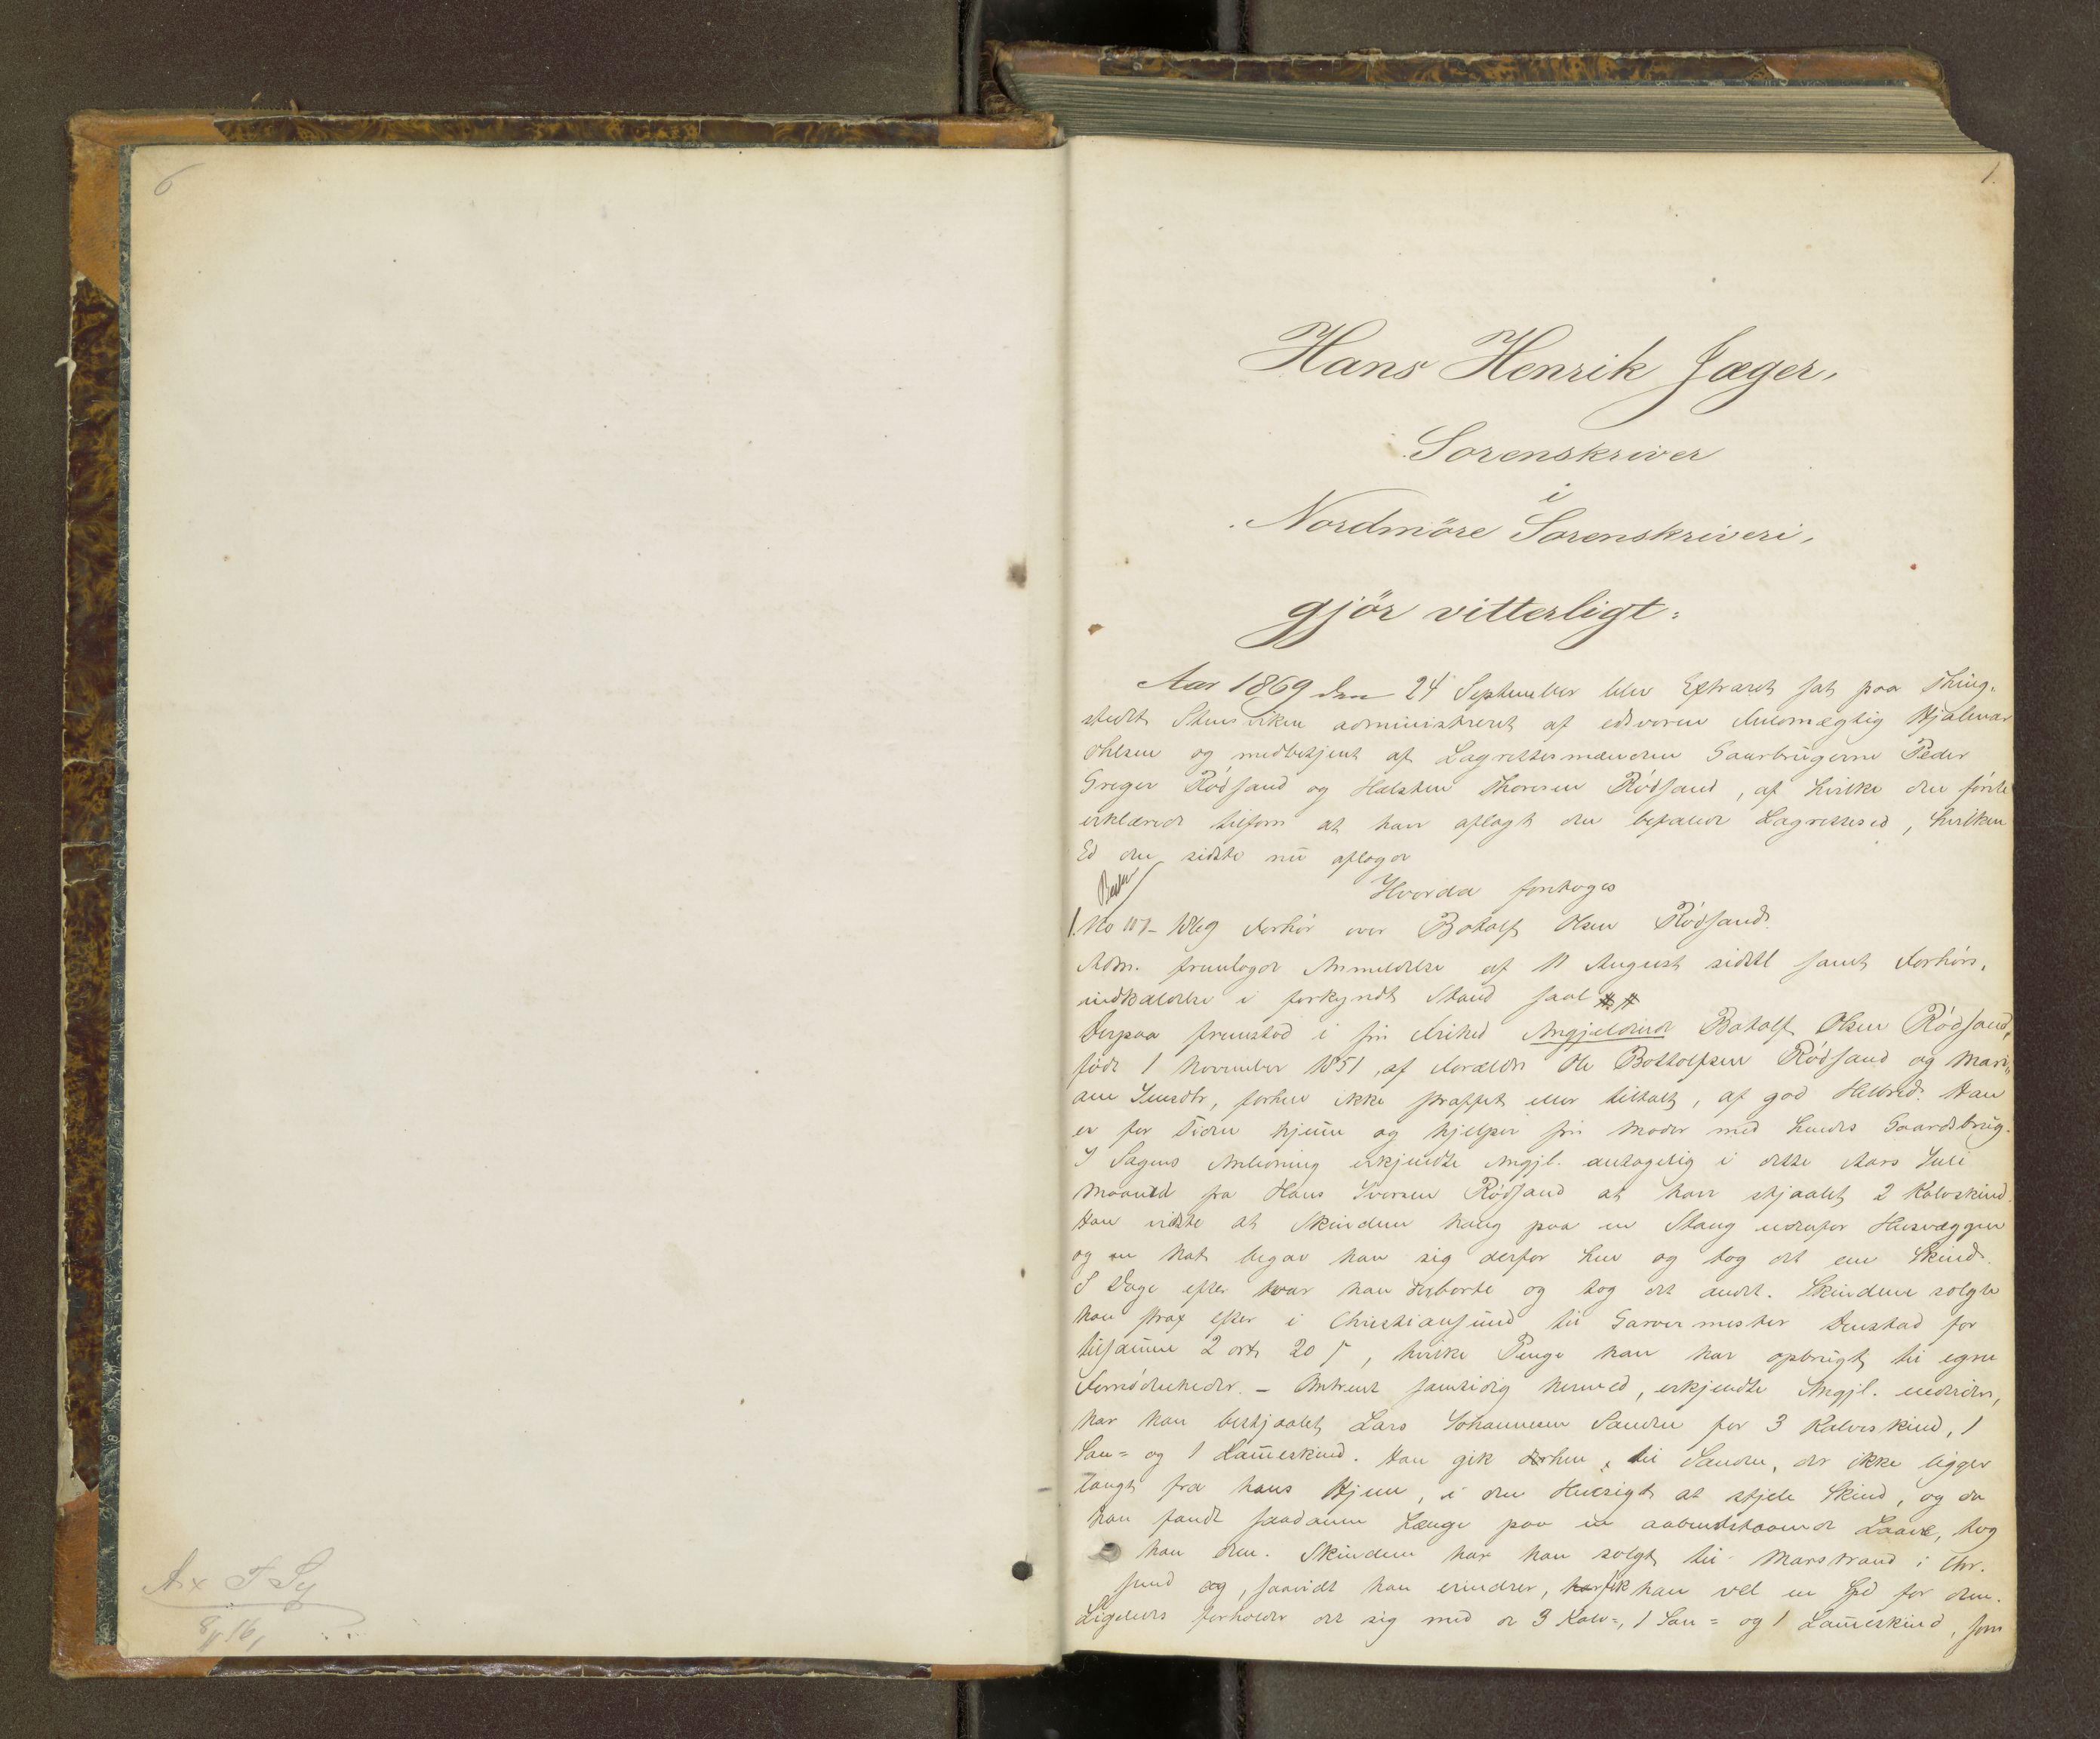 6
1.
Hans Henrik Jæger,
Sorenskriver
i
Nordmöre Sorenskriveri,
gjör vitterligt:
Aar 1869 den 24 September blev Extraret sat paa Thing-
stedet Stensviken administreret af edsvoren Fuldmægtig Hjalmar
Ohlsen og medbetjent af Lagrettesmændene Gaarbrugerne Peder
Greger Rödsand og Halsten Thoresen Rödsand, af hvilke den förste
erklærede tilforn at have aflagt den befalede Lagrettesed, hvilken
Ed den sidste nu aflagde
Hvorda foretoges
1. No 107- 1869 Forhör over Botolf Olsen Rödsand.
Adm. fremlagde Anmeldelse af 11 August sidstl samt Forhörs-
indkaldelse i forkyndt Stand saal ##
Derpaa fremstod i fri Frihed Angjældende Botolf Olsen Rödsand,
födt 1 November 1851, af Forældre Ole Bottolfsen Rödsand og Mari-
ane Jensdtr, forhen ikke straffet eller tiltalt, af god Helbred. Han
er for Tiden hjemme og hjelper sin Moder med hendes Gaardsbrug.
I Sagens Anledning erkjendte Angjl. antagelig i dette Aars Juli
Maaned fra Hans Iversen Rödsand at have stjaalet 2 Kalveskind.
Han vidste at Skindene hang paa en Stang udenfor Husvæggen
og en Nat begav han sig derfor hen og tog det ene Skind.
8 Dage efter var han derborte og tog det andet. Skindene solgte
han strax efter i Christiansund til Garvermester Denstad for
tilsamme 2 ort 20 s, hvilke Penge han har opbrugt til egne
Fornödenheder. - Omtrent samtidig hermed, erkjendte Angjl. endvidere,
har han bestjaalet Lars Johannesen Sanden for 3 Kalveskind, 1
Sau= og 1 Lammeskind. Han gik derhen, til Sanden, der ikke ligger
langt fra hans Hjem, i den Hensigt at stjele Skind, og da
han fandt saadanne hænge paa en aabentstaaende Laave, tog
han dem. Skindene har han solgt til Marstrand i Chr.
sund og, saavidt han erindrer, har fik han vel en Spd for dem.
Ligeledes forholder det sig med de 3 Kalv=, 1 Sau= og 1 Lammeskind, som